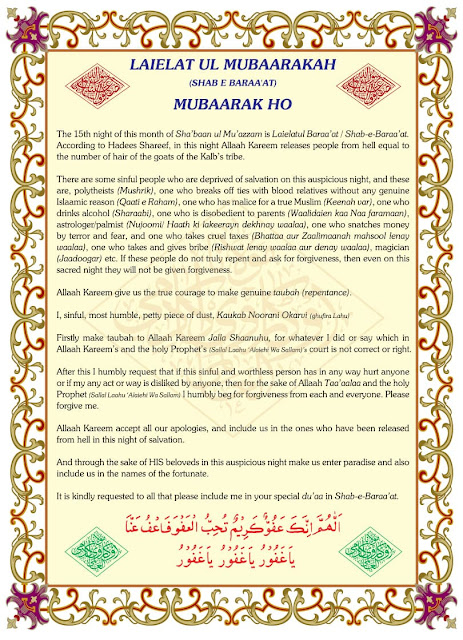 LAIELAT UL MUBAARAKAH
(SHAB E BARAA'AT)
MUBAARAK HO
The 15th night of this month of Sha'baan ul Mu'azzam is Laielatul Baraa'at / Shab-e-Baraa'at.
According to Hadees Shareef, in this night Allaah Kareem releases people from hell equal to
the number of hair of the goats of the Kalb's tribe.
There are some sinful people who are deprived of salvation on this auspicious night, and these
are, polytheists (Mushrik), one who breaks off ties with blood relatives without any genuine
Islaamic reason (Qaati e Raham), one who has malice for a true Muslim (Keenah var), one who
drinks alcohol (Sharaabi), one who is disobedient to parents (Waalidaien kaa Naa faramaan),
astrologer/palmist (Nujoomi/ Haath ki lakeerayn dekhnay waalaa), one who snatches money
by terror and fear, and one who takes cruel taxes (Bhattaa aur Zaalimaanah mahsool lenay
waalaa), one who takes and gives bribe (Rishwat lenay waalaa aur denay waalaa), magician
(Jaadoogar) etc. If these people do not truly repent and ask for forgiveness, then even on this
sacred night they will not be given forgiveness.
Allaah Kareem give us the true courage to make genuine taubah (repentance).
I, sinful, most humble, petty piece of dust, Kaukab Noorani Okarvi (ghufira Lahu)
Firstly make taubah to Allaah Kareem Jalla Shaanuhu, for whatever I did or say which in
Allaah Kareem's and the holy Prophet's (Sallal Laahu 'Alaiehi Wa Sallam)'s court is not correct or right.
After this I humbly request that if this sinful and worthless person has in any way hurt anyone
or if my any act or way is disliked by anyone, then for the sake of Allaah Taa'aalaa and the holy
Prophet (Sallal Laahu 'Alaiehi Wa Sallam) I humbly beg for forgiveness from each and everyone. Please
forgive me.
Allaah Kareem accept all our apologies, and include us in the ones who have been released
from hell in this night of salvation.
And through the sake of HIS beloveds in this auspicious night make us enter paradise and also
include us in the names of the fortunate.
It is kindly requested to all that please include me in your special du'aa in Shab-e-Baraa'at.
اَللّٰهُمَّ اِنَّكَ عَفُوٌّ كَرِيْمٌ تُحِبُّ الْعَفْوَ فَاعْفُ عَنَّا
يَا غَفُوْرُ يَا غَفُوْرُ يَا غَفُوْرُ